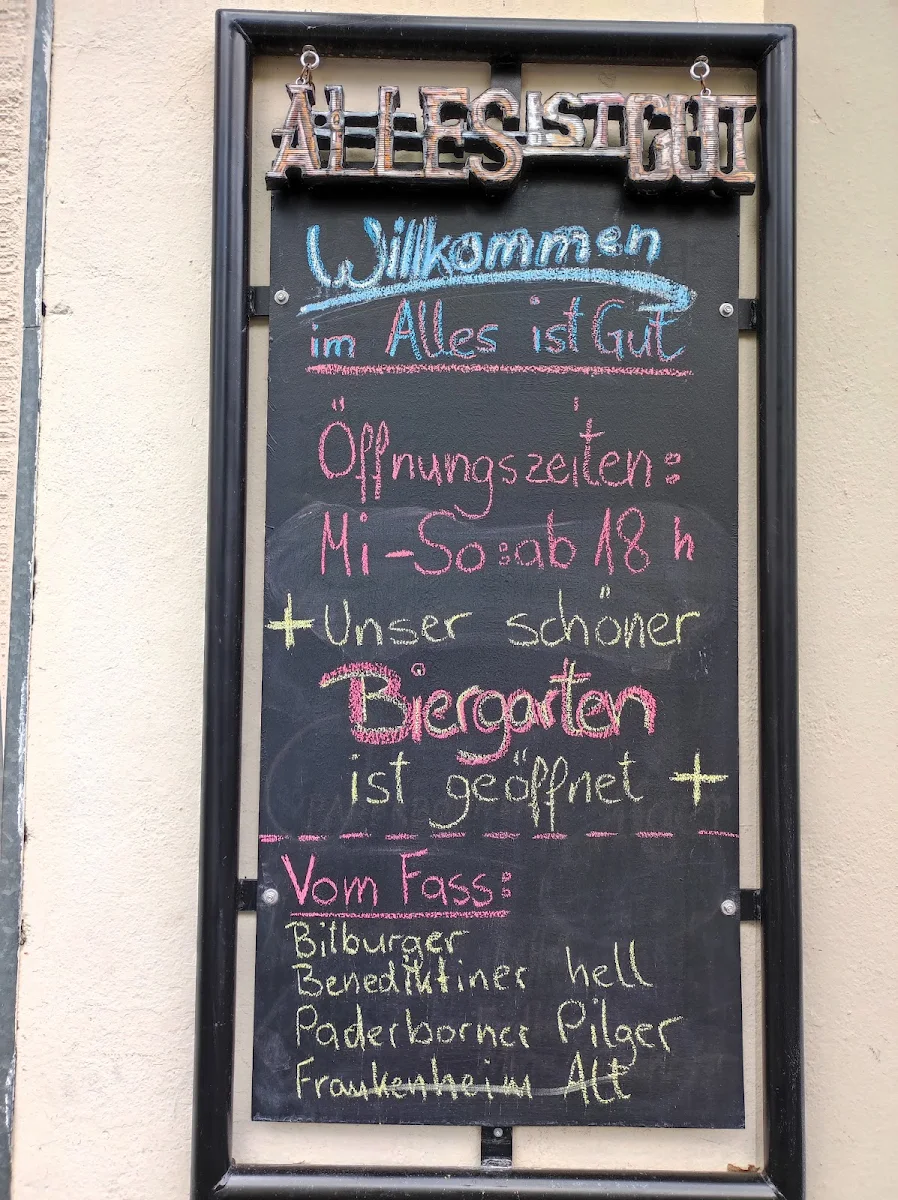 ALLES IST GUT
Willkommen
im Alles ist Gut
Öffnungszeiten:
Mi-So: ab 18 h
+ Unser schöner
Biergarten
ist geöffnet +
Vom Fass:
Bitburger
Benediktiner hell
Paderborner Pilger
Frankenheim Alt